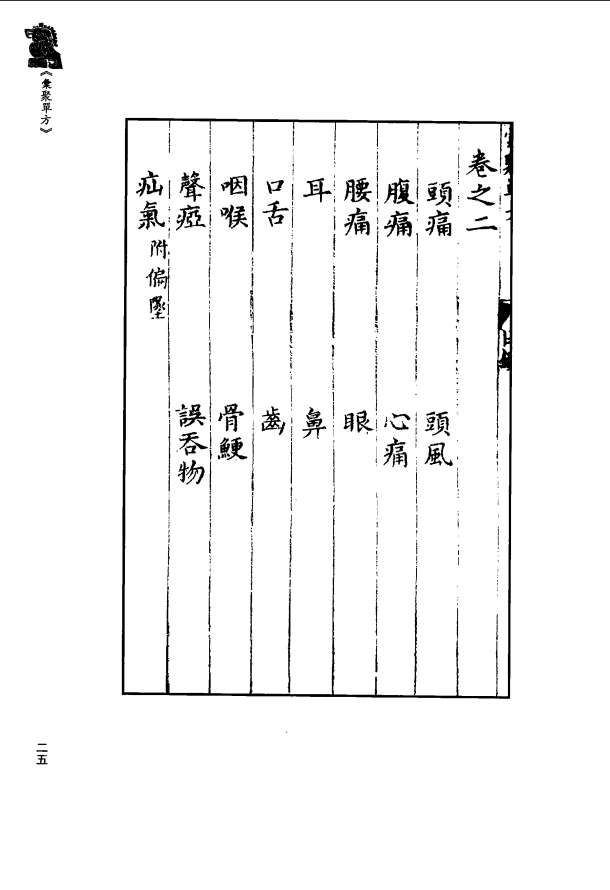 《彙聚單方》
卷之二
頭痛 頭風
腹痛 心痛
腰痛 眼
耳 鼻
口舌 齒
咽喉 骨鯁
聲瘂 誤吞物
疝氣 附偏墜
二五